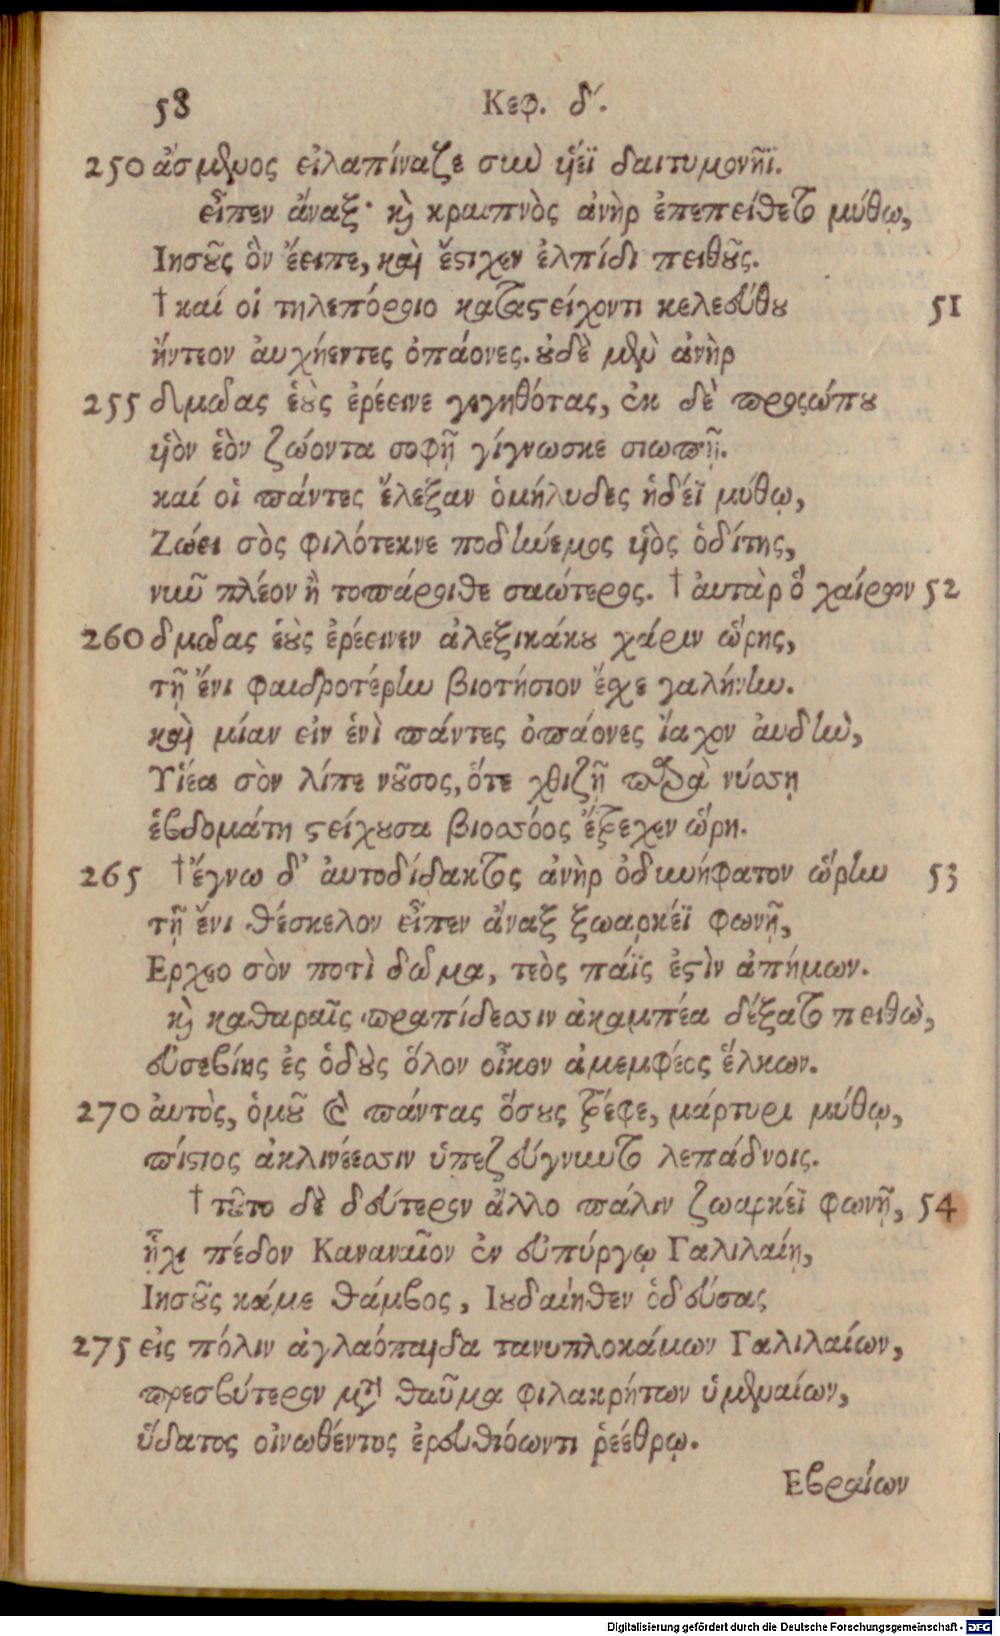 58 Κεφ. δ´.
250 ἄσμενος εἰλαπίναζε σὺν ὑέϊ δαιτυμονῆϊ.
εἶπεν ἄναξ· καὶ κραιπνὸς ἀνὴρ ἐπεπείθετο μύθῳ,
Ιησοῦς ὃν ἔειπε, καὶ ἔστιχεν ἐλπίδι πειθοῦς.
† καί οἱ τηλεπόροιο καταστείχοντι κελεύθου 51
ἤντεον αὐχήεντες ὀπάονες. οὐδὲ μὲν ἀνὴρ
255 δμῶας ἑοὺς ἐρέεινε γεγηθότας, ἐκ δὲ προσώπου
ὑὸν ἑὸν ζώοντα σοφῇ γίγνωσκε σιωπῇ.
καί οἱ πάντες ἔλεξαν ὁμήλυδες ἡδέϊ μύθῳ,
Ζώει σὸς φιλότεκνε ποδήνεμος ὑὸς ὁδίτης,
νῦν πλέον ἢ τοπάροιθε σαώτερος. † αὐτὰρ ὁ χαίρων 52
260 δμῶας ἑοὺς ἐρέεινεν ἀλεξικάκου χάριν ὥρης,
τῇ ἔνι φαιδροτέρην βιοτήσιον ἔσχε γαλήνην.
καὶ μίαν εἰν ἑνὶ πάντες ὀπάονες ἴαχον αὐδὴν,
Υἱέα σὸν λίπε νοῦσος, ὅτε χθιζῇ παρὰ νύσσῃ
ἑβδομάτη στείχουσα βιοσσόος ἔτρεχεν ὥρη.
265 † ἔγνω δ' αὐτοδίδακτος ἀνὴρ ὀδυνήφατον ὥρην 53
τῇ ἔνι θέσκελον εἶπεν ἄναξ ξωαρκέϊ φωνῇ,
Ερχεο σὸν ποτὶ δῶμα, τεὸς πάϊς ἐστὶν ἀπήμων.
καὶ καθαραῖς πραπίδεσσιν ἀκαμπέα δέξατο πειθὼ,
εὐσεβίης ἐς ὁδοὺς ὅλον οἶκον ἀμεμφέος ἕλκων.
270 αὐτὸς, ὁμοῦ καὶ πάντας ὅσους τρέφε, μάρτυρι μύθῳ,
πίστιος ἀκλινέεσσιν ὑπεζεύγνυτο λεπάδνοις.
† τοῦτο δὲ δεύτερον ἄλλο πάλιν ζωαρκέϊ φωνῇ, 54
ᾗχι πέδον Καναναῖον ἐν εὐπύργῳ Γαλιλαίῃ,
Ιησοῦς κάμε θάμβος, Ιουδαίηθεν ὁδεύσας
275 εἰς πόλιν ἀγλαόπαιδα τανυπλοκάμων Γαλιλαίων,
πρεσβύτερον μετὰ θαῦμα φιλακρήτων ὑμεναίων,
ὕδατος οἰνωθέντος ἐρευθιόωντι ῥεέθρῳ.
Εβραίων
Digitalisierung gefördert durch die Deutsche Forschungsgemeinschaft - DFG